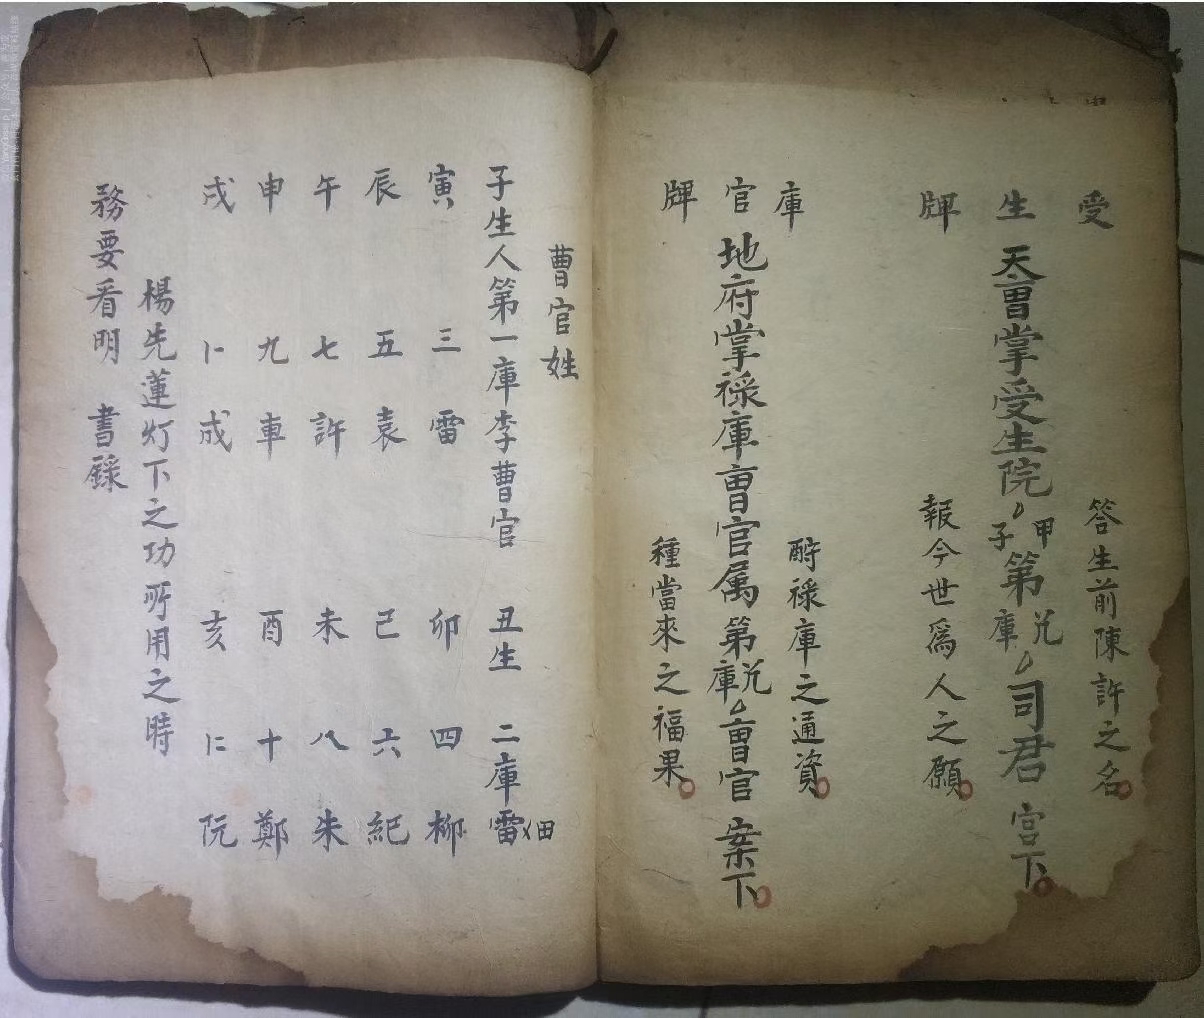 受
生
牌
答生前陳許之名
天曹掌受生院甲子第兊庫司君宮下
報今世爲人之願
庫
官
牌
酧禄庫之通資
地府掌禄庫曹官属第兊庫曹官案下
種當來之福果
曹官姓
子生人第一庫李曹官 丑生 二庫雷 田
寅 三 雷 卯 四 柳
辰 五 袁 巳 六 紀
午 七 許 未 八 朱
申 九 車 酉 十 鄭
戌 卜 成 亥 仁 阮
楊先蓮灯下之功所用之時
務要看明 書録